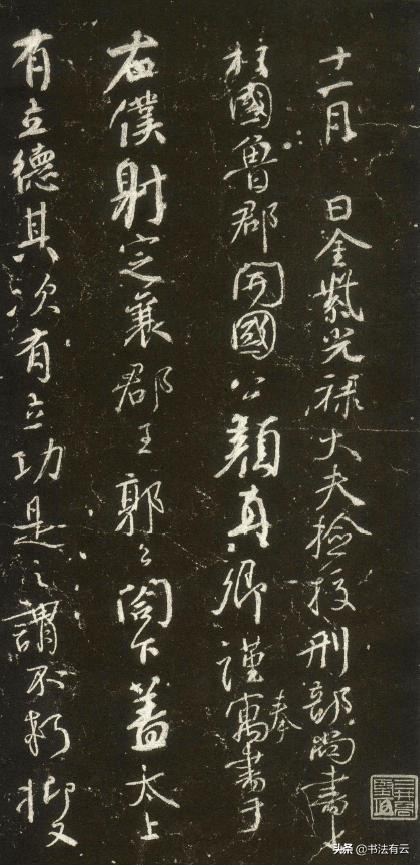 十一月　日金紫光禄大夫检校刑部尚書上
柱國魯郡開國公顏真卿謹奉寓書于
右僕射定襄郡王郭公閤下蓋太上
有立德其次有立功是之謂不朽抑又
头条 @书法有云